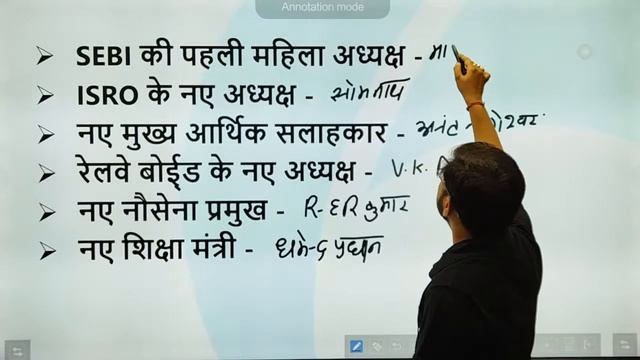 Annotation mode
➤ SEBI की पहली महिला अध्यक्ष - मा
➤ ISRO के नए अध्यक्ष - सोमनाथ
➤ नए मुख्य आर्थिक सलाहकार - अनंत
➤ रेलवे बोर्ईड के नए अध्यक्ष - V. K.
➤ नए नौसेना प्रमुख - R- हरि कुमार
➤ नए शिक्षा मंत्री - धर्मेन्द्र प्रधान